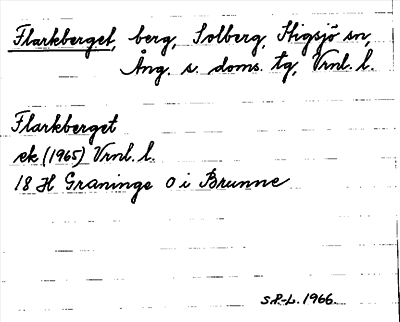 Flarkberget, berg, Solberg, Stigsjö sn,
Ång. s. doms. tg, Vrnl. l.
Flarkberget
ek (1965) Vrnl. l.
18 H Graninge O i Brunne
S.P-L. 1966.